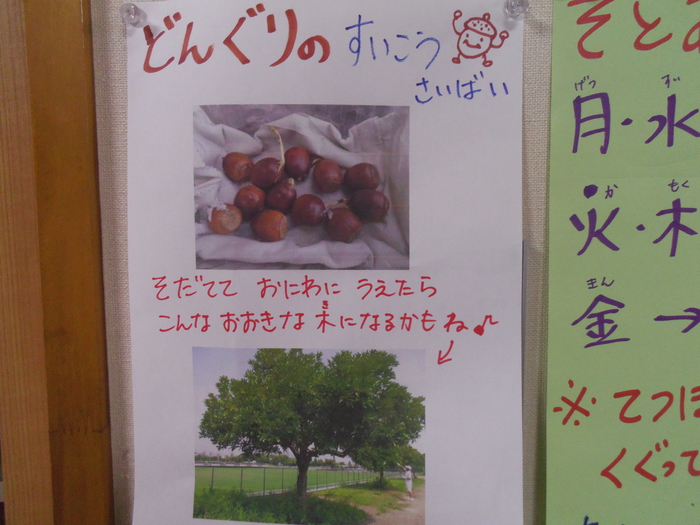 どんぐりの すいこう
さいばい
そだてて おにわに うえたら
き
こんな おおきな 木になるかもね♪
そとあ
げつ すい
月・水
か もく
火・木
きん
金→
※てつぼ
くぐって